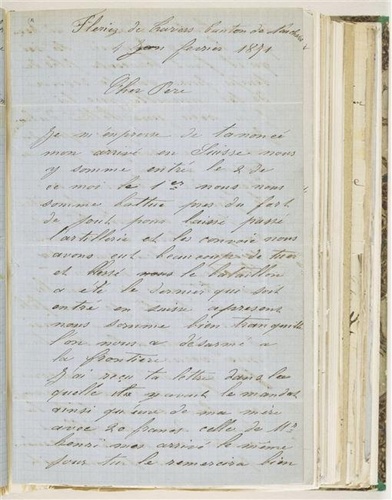 Fleurier de Travers Canton de Neuchatel
4 février 1871
Cher Pere
Je m'empresse de tanoncé
mon arrivé en Suisse nous
y somme entré le 2 de
ce moi le 1er nous nous
somme battue pres du fort
de joux pour laissé passé
l'artillerie et les convoie nous
avons eut beaucoup de tues
et blessé le bataillon
a eté le dernier qui soit
entré en suisse apresent
nous somme bien tranquille
l'on nous a désarmé a
la frontiere
J'ai reçu ta lettre dans la
quelle il y avait le mandat
ainsi qu'une de ma mère
avec 20 francs celle de Mr
henri mes arrivé le même
jour tu le remercira bien